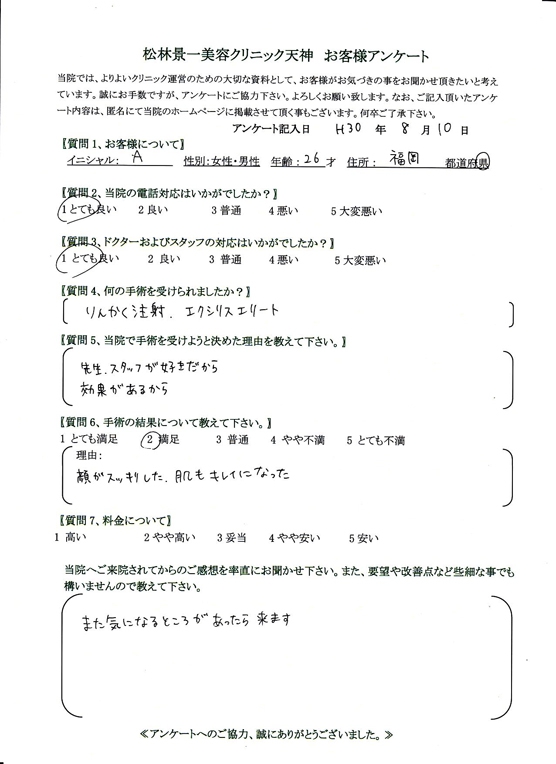 松林景一美容クリニック天神 お客様アンケート
当院では、よりよいクリニック運営のための大切な資料として、お客様がお気づきの事をお聞かせ頂きたいと考え
ています。誠にお手数ですが、アンケートにご協力下さい。よろしくお願い致します。なお、ご記入頂いたアンケ
ート内容は、匿名にて当院のホームページに掲載させて頂く事もございます。何卒ご了承下さい。
アンケート記入日 H30 年 8 月 10 日
〖質問1、お客様について〗
イニシャル: A 性別:女性・男性 年齢:26才 住所: 福岡 都道府県
〖質問2、当院の電話対応はいかがでしたか?〗
1 とても良い 2 良い 3 普通 4 悪い 5 大変悪い
〖質問3、ドクターおよびスタッフの対応はいかがでしたか?〗
1 とても良い 2 良い 3 普通 4 悪い 5 大変悪い
〖質問4、何の手術を受けられましたか?〗
りんかく注射. エクシリスエリート
〖質問5、当院で手術を受けようと決めた理由を教えて下さい。〗
先生.スタッフが好きだから
効果があるから
〖質問6、手術の結果について教えて下さい。〗
1 とても満足 2 満足 3 普通 4 やや不満 5 とても不満
理由:
顔がスッキリした. 肌もキレイになった
〖質問7、料金について〗
1 高い 2 やや高い 3 妥当 4 やや安い 5 安い
当院へご来院されてからのご感想を率直にお聞かせ下さい。また、要望や改善点など些細な事でも
構いませんので教えて下さい。
また気になるところがあったら来ます
≪アンケートへのご協力、誠にありがとうございました。≫